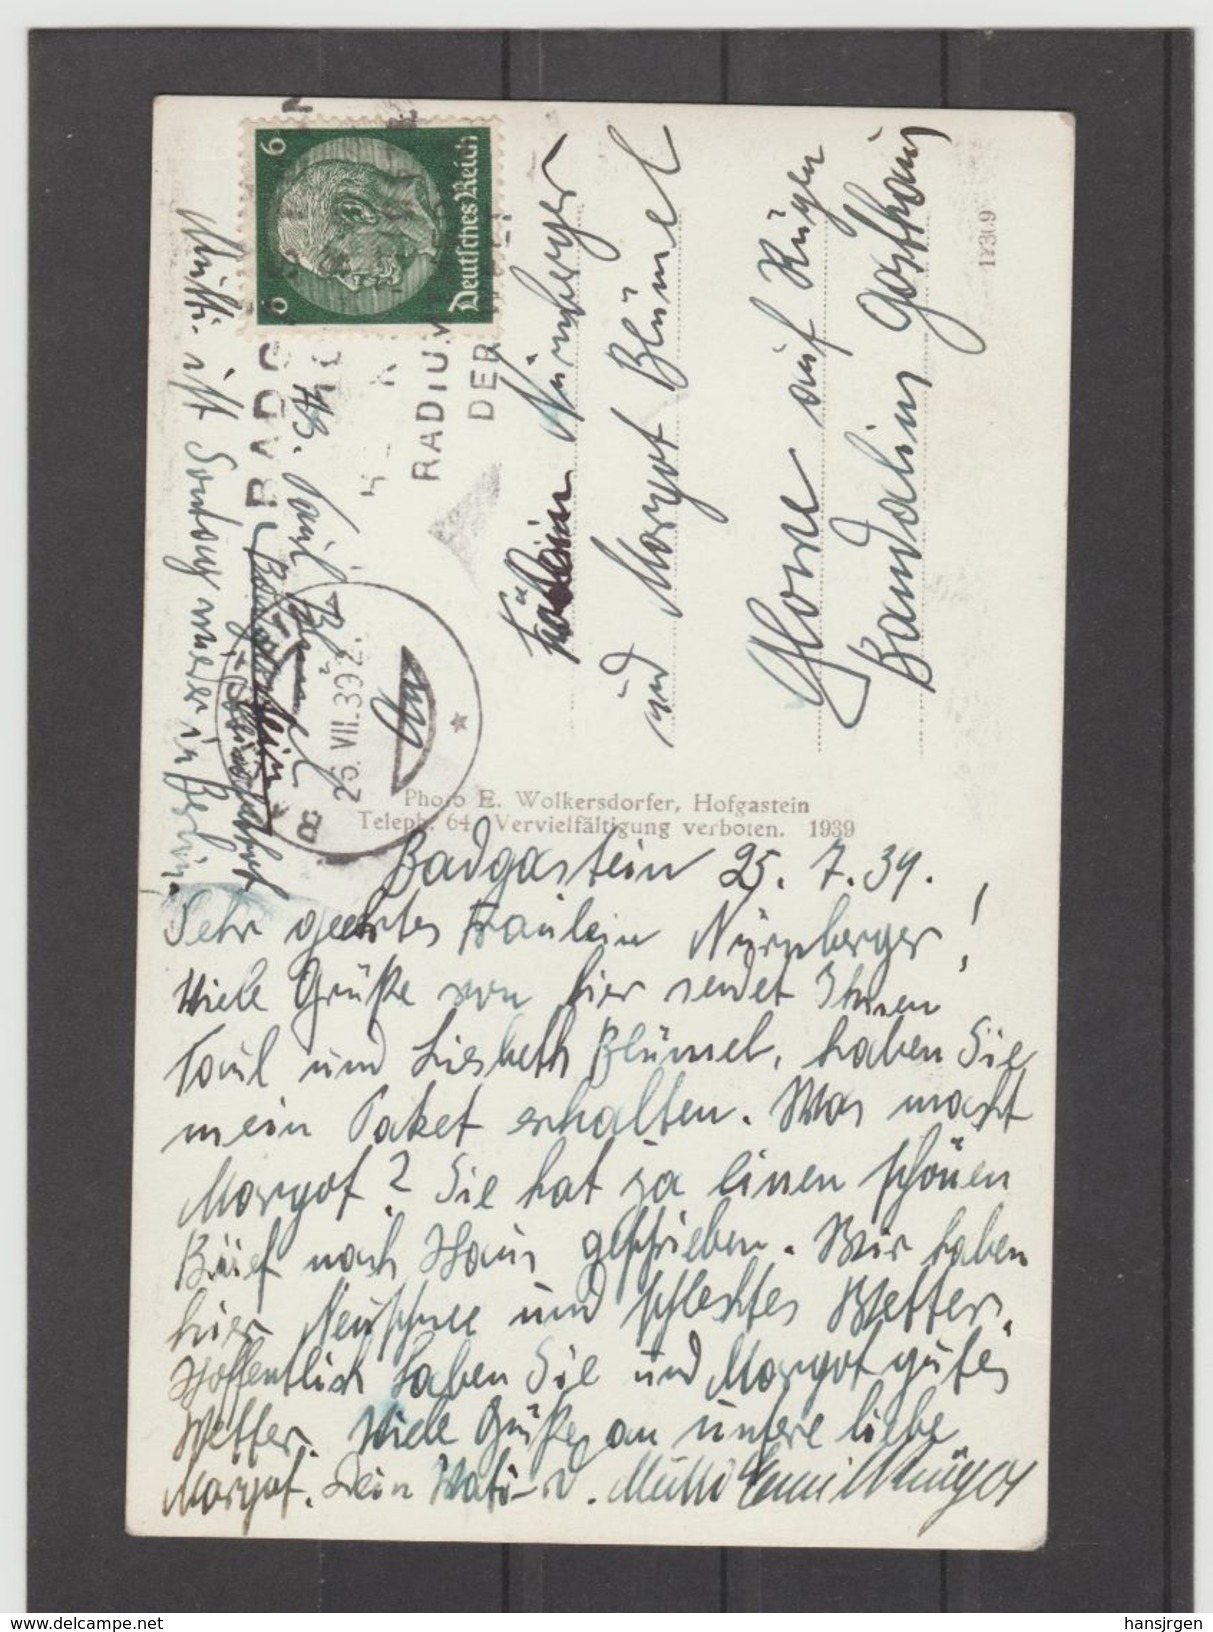 Badgastein 25.7.39.
Sehr geehrtes Fräulein Nürnberger!
Viele Grüße von hier sendet Ihnen
Paul und Lisbeth Blümel, haben Sie
mein Paket erhalten. Was macht
Margot? Sie hat ja einen schönen
Brief nach Haus geschrieben. Wir haben
hier Neuschnee und schlechtes Wetter.
Hoffentlich haben Sie und Margot gutes
Wetter. Viele Grüße an unsere liebe
Margot. Dein Vati u. Mutti
Photo E. Wolkersdorfer, Hofgastein
Teleph. 64. Vervielfältigung verboten. 1939
Fräulein Nürnberger
und Margot Blümel
Glowe auf Rügen
Bandelin
17309
6 6
Deutsches Reich
BADG
RADIUM
DER
26.VII.39
Abs. Paul Blümel
Mutti ist Sontag wieder in Berlin.
delcampe.net
hansjrgen